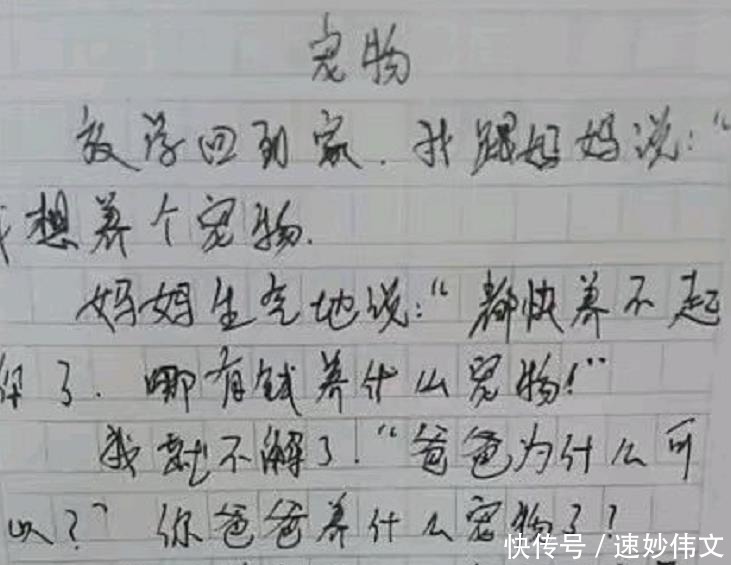 宠物
放学回到家.我跟妈妈说:“
我想养个宠物.
妈妈生气地说:“都快养不起
你了.哪有钱养什么宠物!”
我就不解了.“爸爸为什么可
以?”你爸爸养什么宠物了?
快传号/速妙伟文